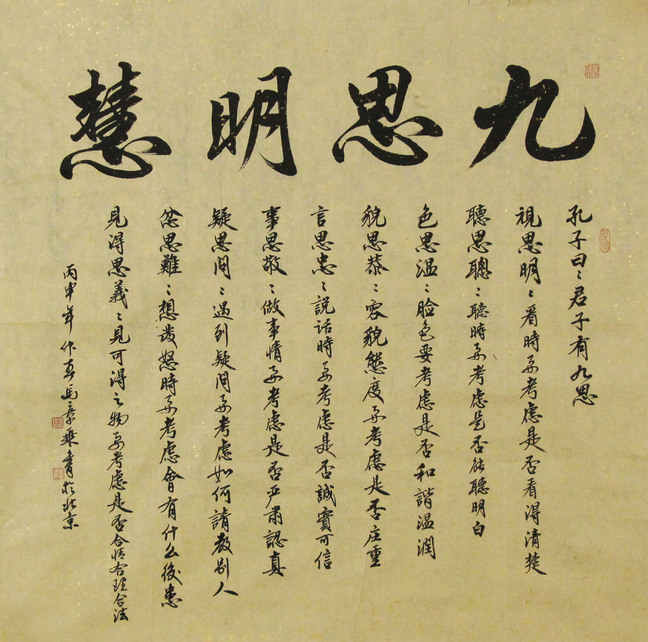 九思明慧
孔子曰：君子有九思
視思明：看時要考慮是否看得清楚
聽思聰：聽時要考慮是否能聽明白
色思温：脸色要考慮是否和諧温潤
貌思恭：容貌態度要考慮是否庄重
言思忠：説话時要考慮是否誠實可信
事思敬：做事情要考慮是否严肃認真
疑思问：遇到疑问要考慮如何請教别人
忿思難：想发怒時要考慮會有什么後患
見得思義：見可得之物要考慮是否合情合理合法
丙申年仲春馬景乘書於北京